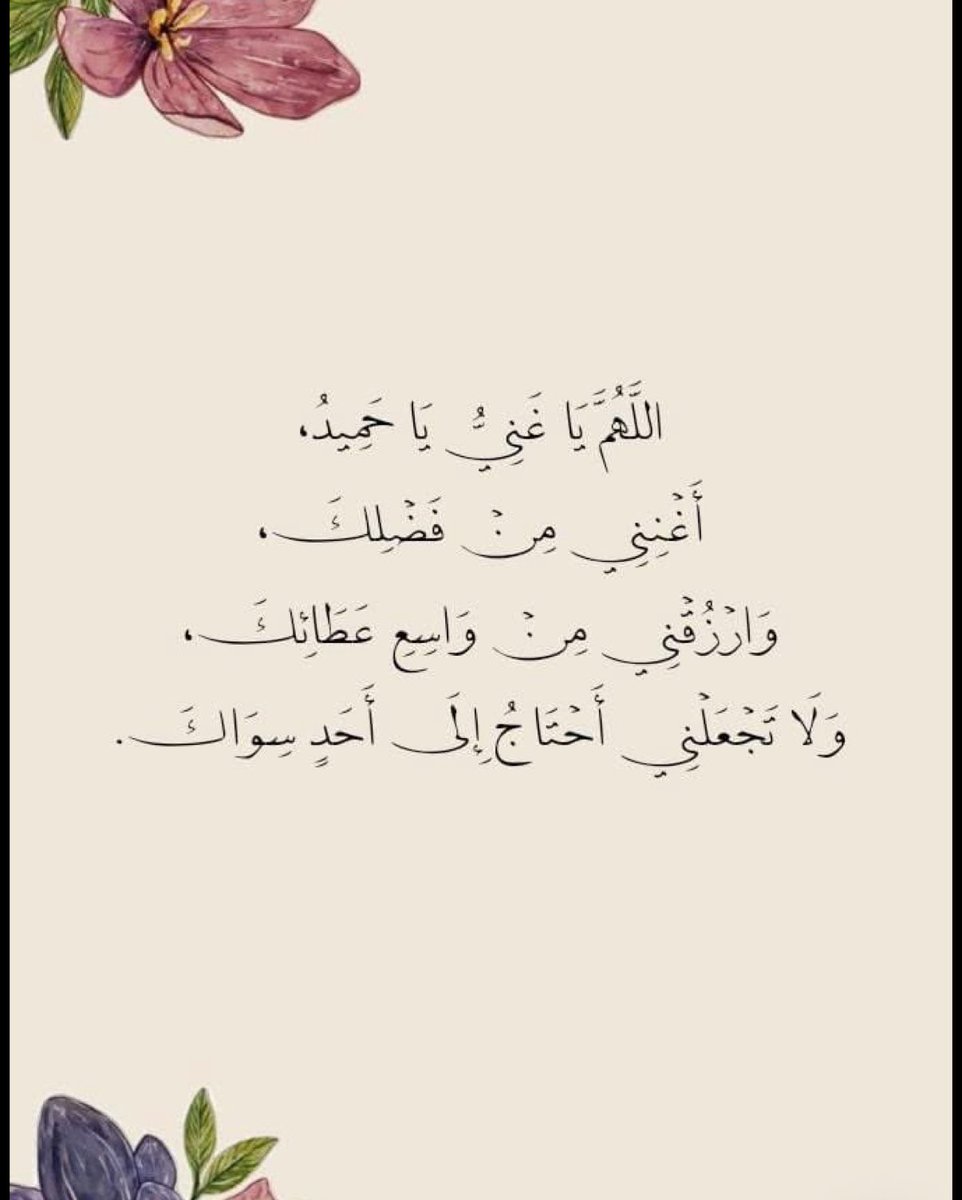 اللَّهُمَّ يَا غَنِيُّ يَا حَمِيدُ،
أَغْنِنِي مِنْ فَضْلِكَ،
وَارْزُقْنِي مِنْ وَاسِعِ عَطَائِكَ،
وَلَا تَجْعَلْنِي أَحْتَاجُ إِلَى أَحَدٍ سِوَاكَ.